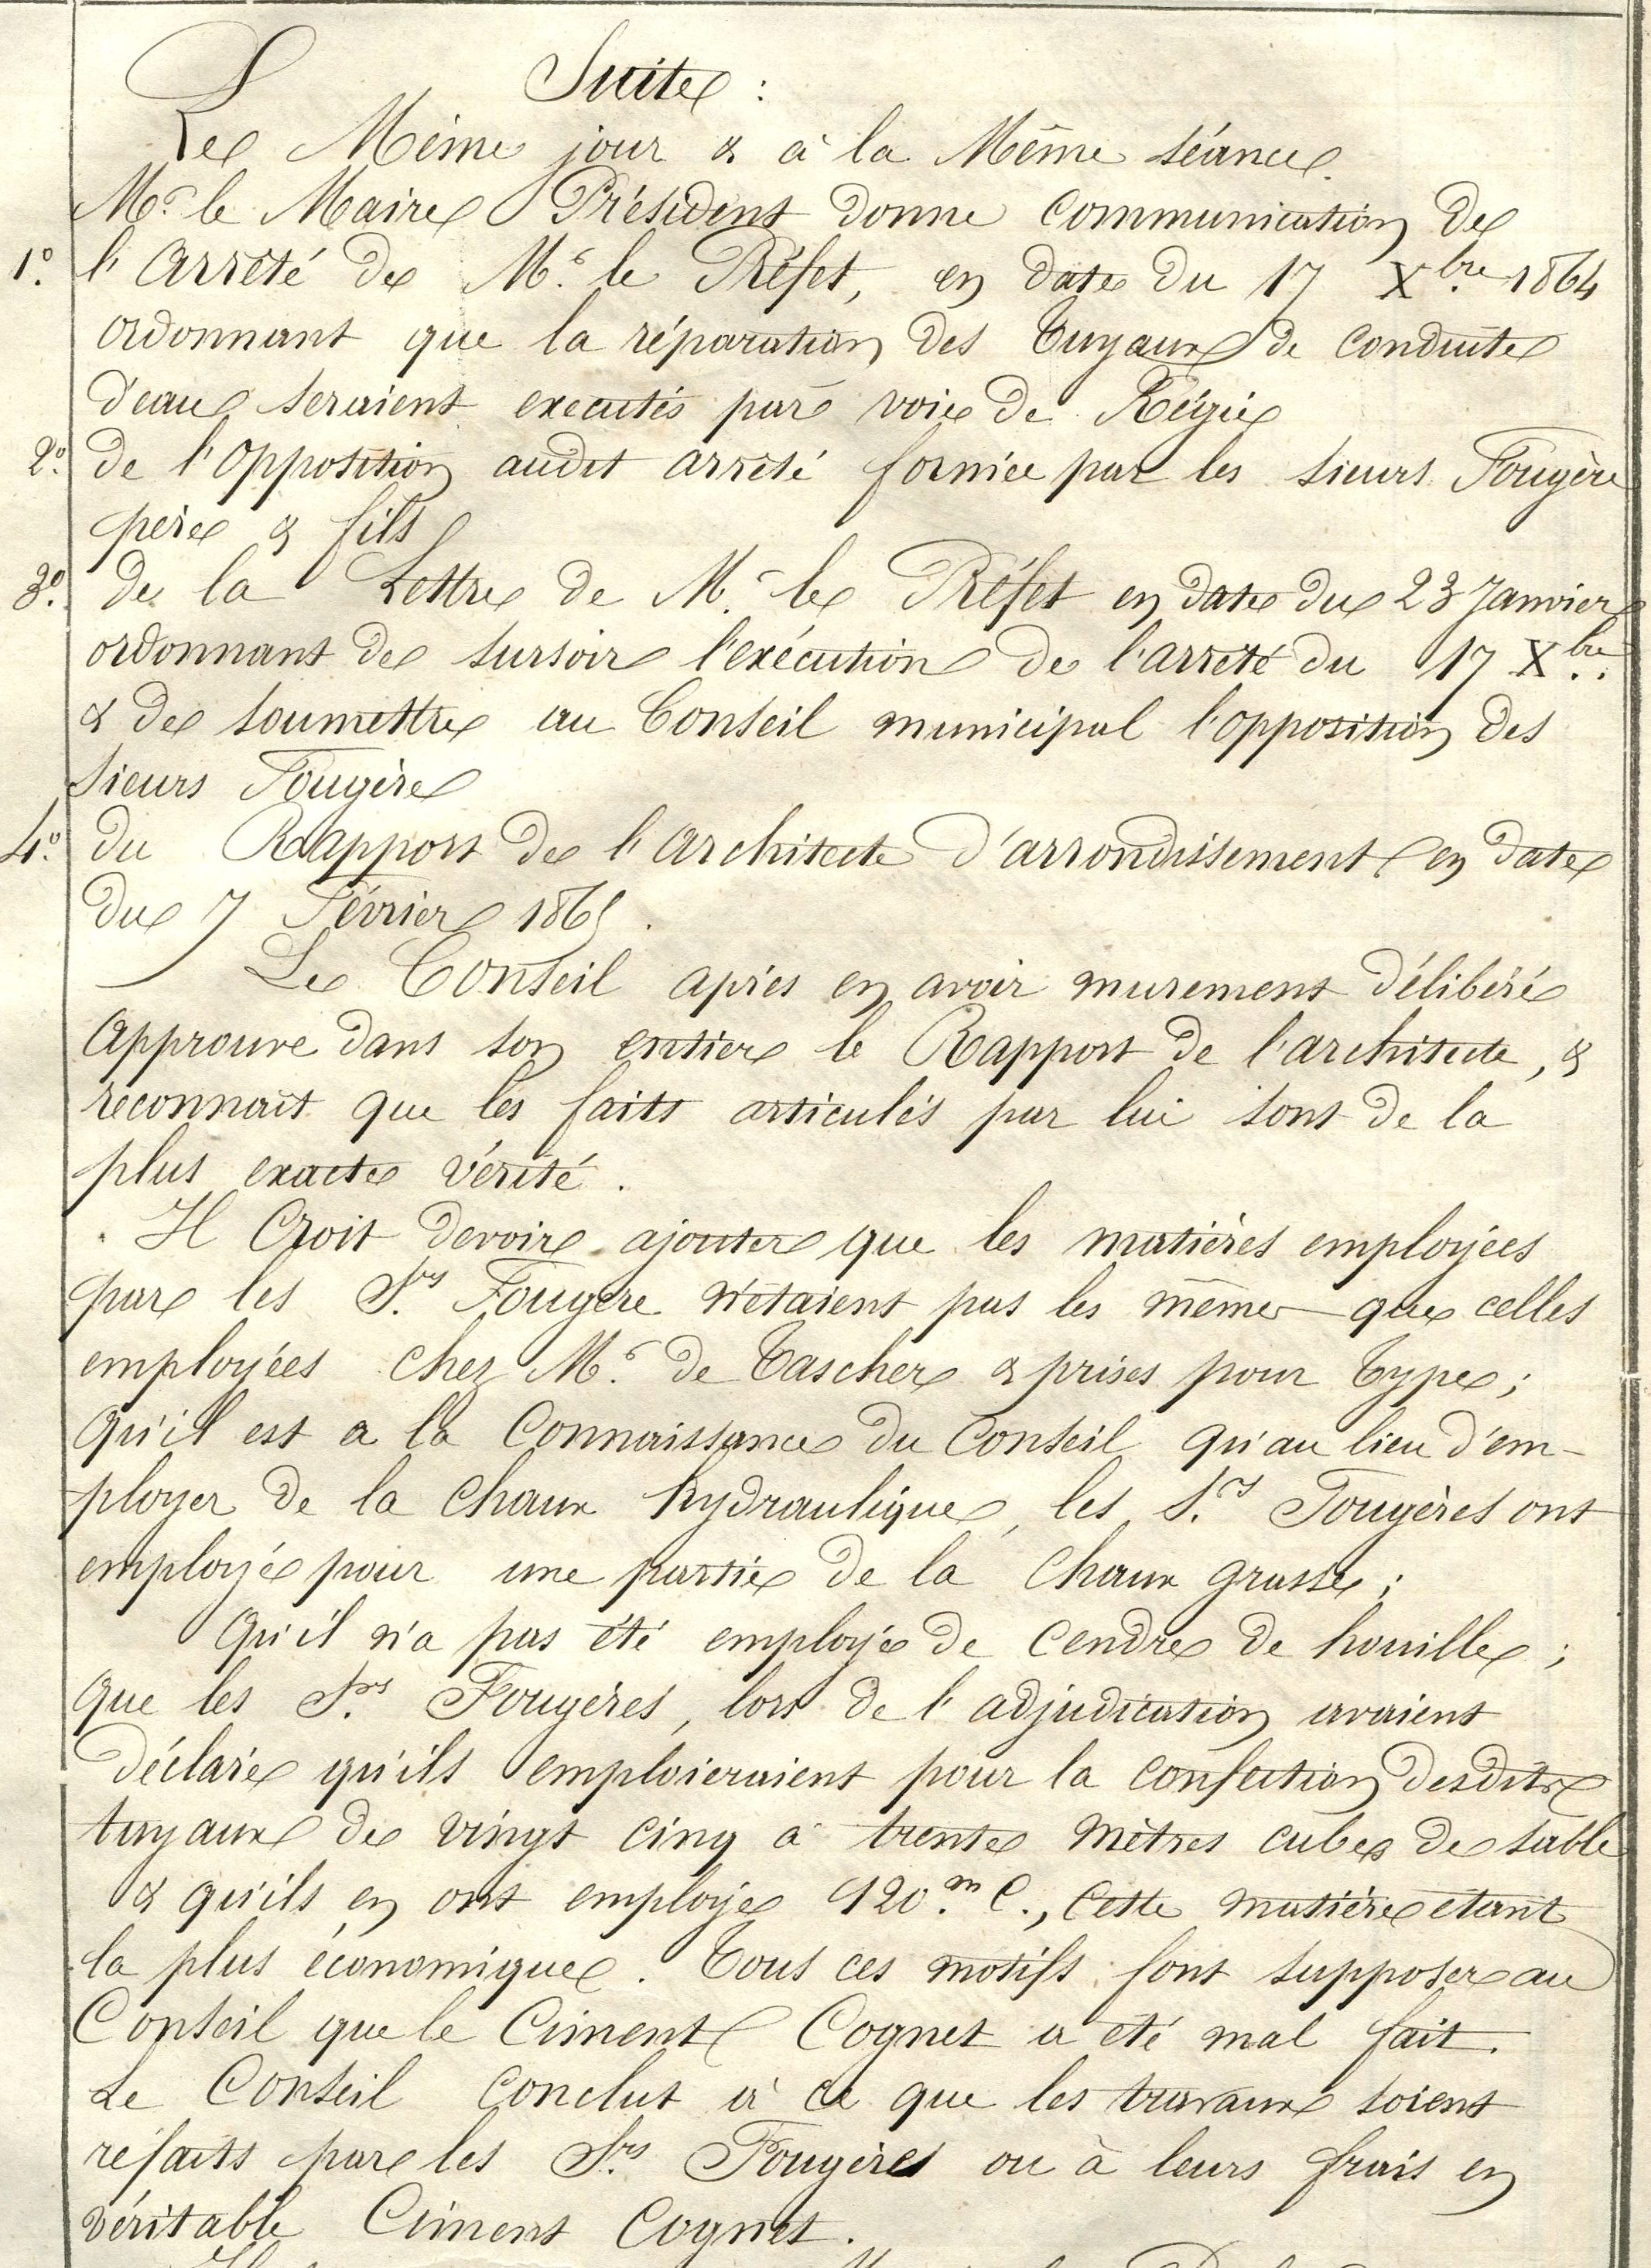 Suite :
Le Même jour & à la Même séance.
Mr. le Maire Président donne Communication de
1o. l'Arrêté de Mr. le Préfet, en date du 17 Xbre 1864
ordonnant que la réparation des Tuyaux de conduite
d'eau seraient executés par voie de Régie
2o. de l'Opposition audit arrêté formée par les sieurs Fougère
père & fils
3o. de la Lettre de Mr. le Préfet en date du 23 Janvier
ordonnant de sursoir l'exécution de l'arrêté du 17 Xbre.
& de soumettre au Conseil municipal l'opposition des
sieurs Fougère
4o. du Rapport de l'Architecte d'arrondissement en date
du 7 Février 1865.
Le Conseil après en avoir murement délibéré
Approuve dans son entier le Rapport de l'architecte, &
reconnait que les faits articulés par lui sont de la
plus exacte vérité.
Il Croit devoir ajouter que les matières employées
par les Srs. Fougère n'étaient pas les mêmes que celles
employées chez Mr. de Tascher & prises pour Type ;
Qu'il est a la Connaissance du Conseil qu'au lieu d'em-
ployer de la chaux hydraulique, les Srs. Fougères ont
employé pour une partie de la Chaux grasse ;
Qu'il n'a pas été employé de Cendre de houille ;
Que les Srs. Fougères, lors de l'adjudication avaient
déclaré qu'ils emploieraient pour la confection desdits
tuyaux de vingt cinq à trente Mètres cubes de sable
& qu'ils en ont employé 120 m. C., Cette matière étant
la plus économique. Tous ces motifs font supposer au
Conseil que le Ciment Cognet a été mal fait.
Le Conseil Conclut à ce que les travaux soient
refaits par les Srs. Fougères ou à leurs frais en
véritable Ciment Cognet.